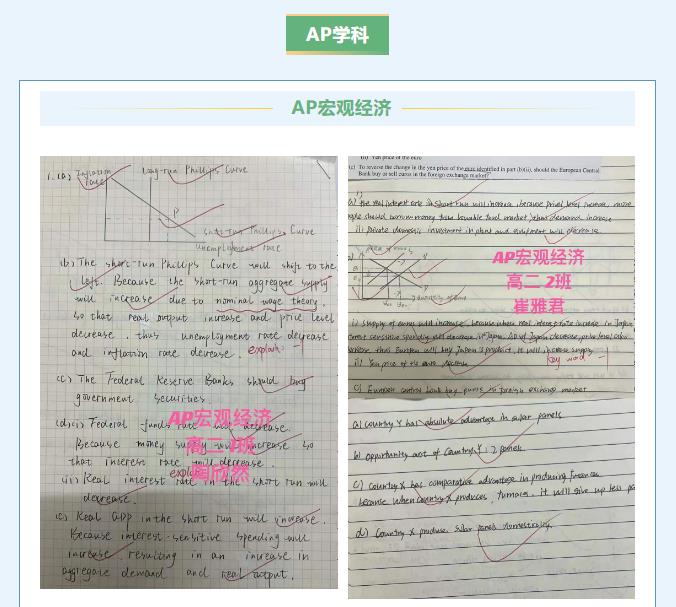 AP学科
AP宏观经济
1.(a) Inflation rate
Long-run Phillips Curve
P
short-run Phillips Curve
unemployment rate
(b) The short-run Phillips Curve will shift to the
left. Because the short-run aggregate supply
will increase due to nominal wage theory.
so that real output increase and price level
decrease. thus unemployment rate decrease
and inflation rate decrease. explain -1
(c) The Federal Reserve Banks should buy
government securities.
(d)(i) Federal funds rate will decrease.
Because money supply will increase so
that interest rate will decrease.
(ii) Real interest rate in the short run will
decrease.
(e) Real GDP in the short run will increase.
Because interest-sensitive spending will
increase, resulting in an increase in
aggregate demand and real output.
AP宏观经济
高二1班
陶欣然
(ii) Yen price of the euro
(c) To reverse the change in the yen price of the euro identified in part (b)(ii), should the European Central
Bank buy or sell euros in the foreign exchange market?
(a) the real interest rate in short run will increase, because price level increase, more
people should borrow money from loanable fund market, than demand increase
ii) private domestic investment in plant and equipment will decrease.
AP宏观经济
高二2班
崔雅君
i) supply of euros will increase, because when real interest rate increase in Japan
key word -1
c) European central bank buy euros in foreign exchange market
(a) Country Y has absolute advantage in solar panels
b) opportunity cost of Country Y: 2 panels.
c) Country X has comparative advantage in producing
because when country X produces, it will give up less
d) Country X produce solar panel domestically.